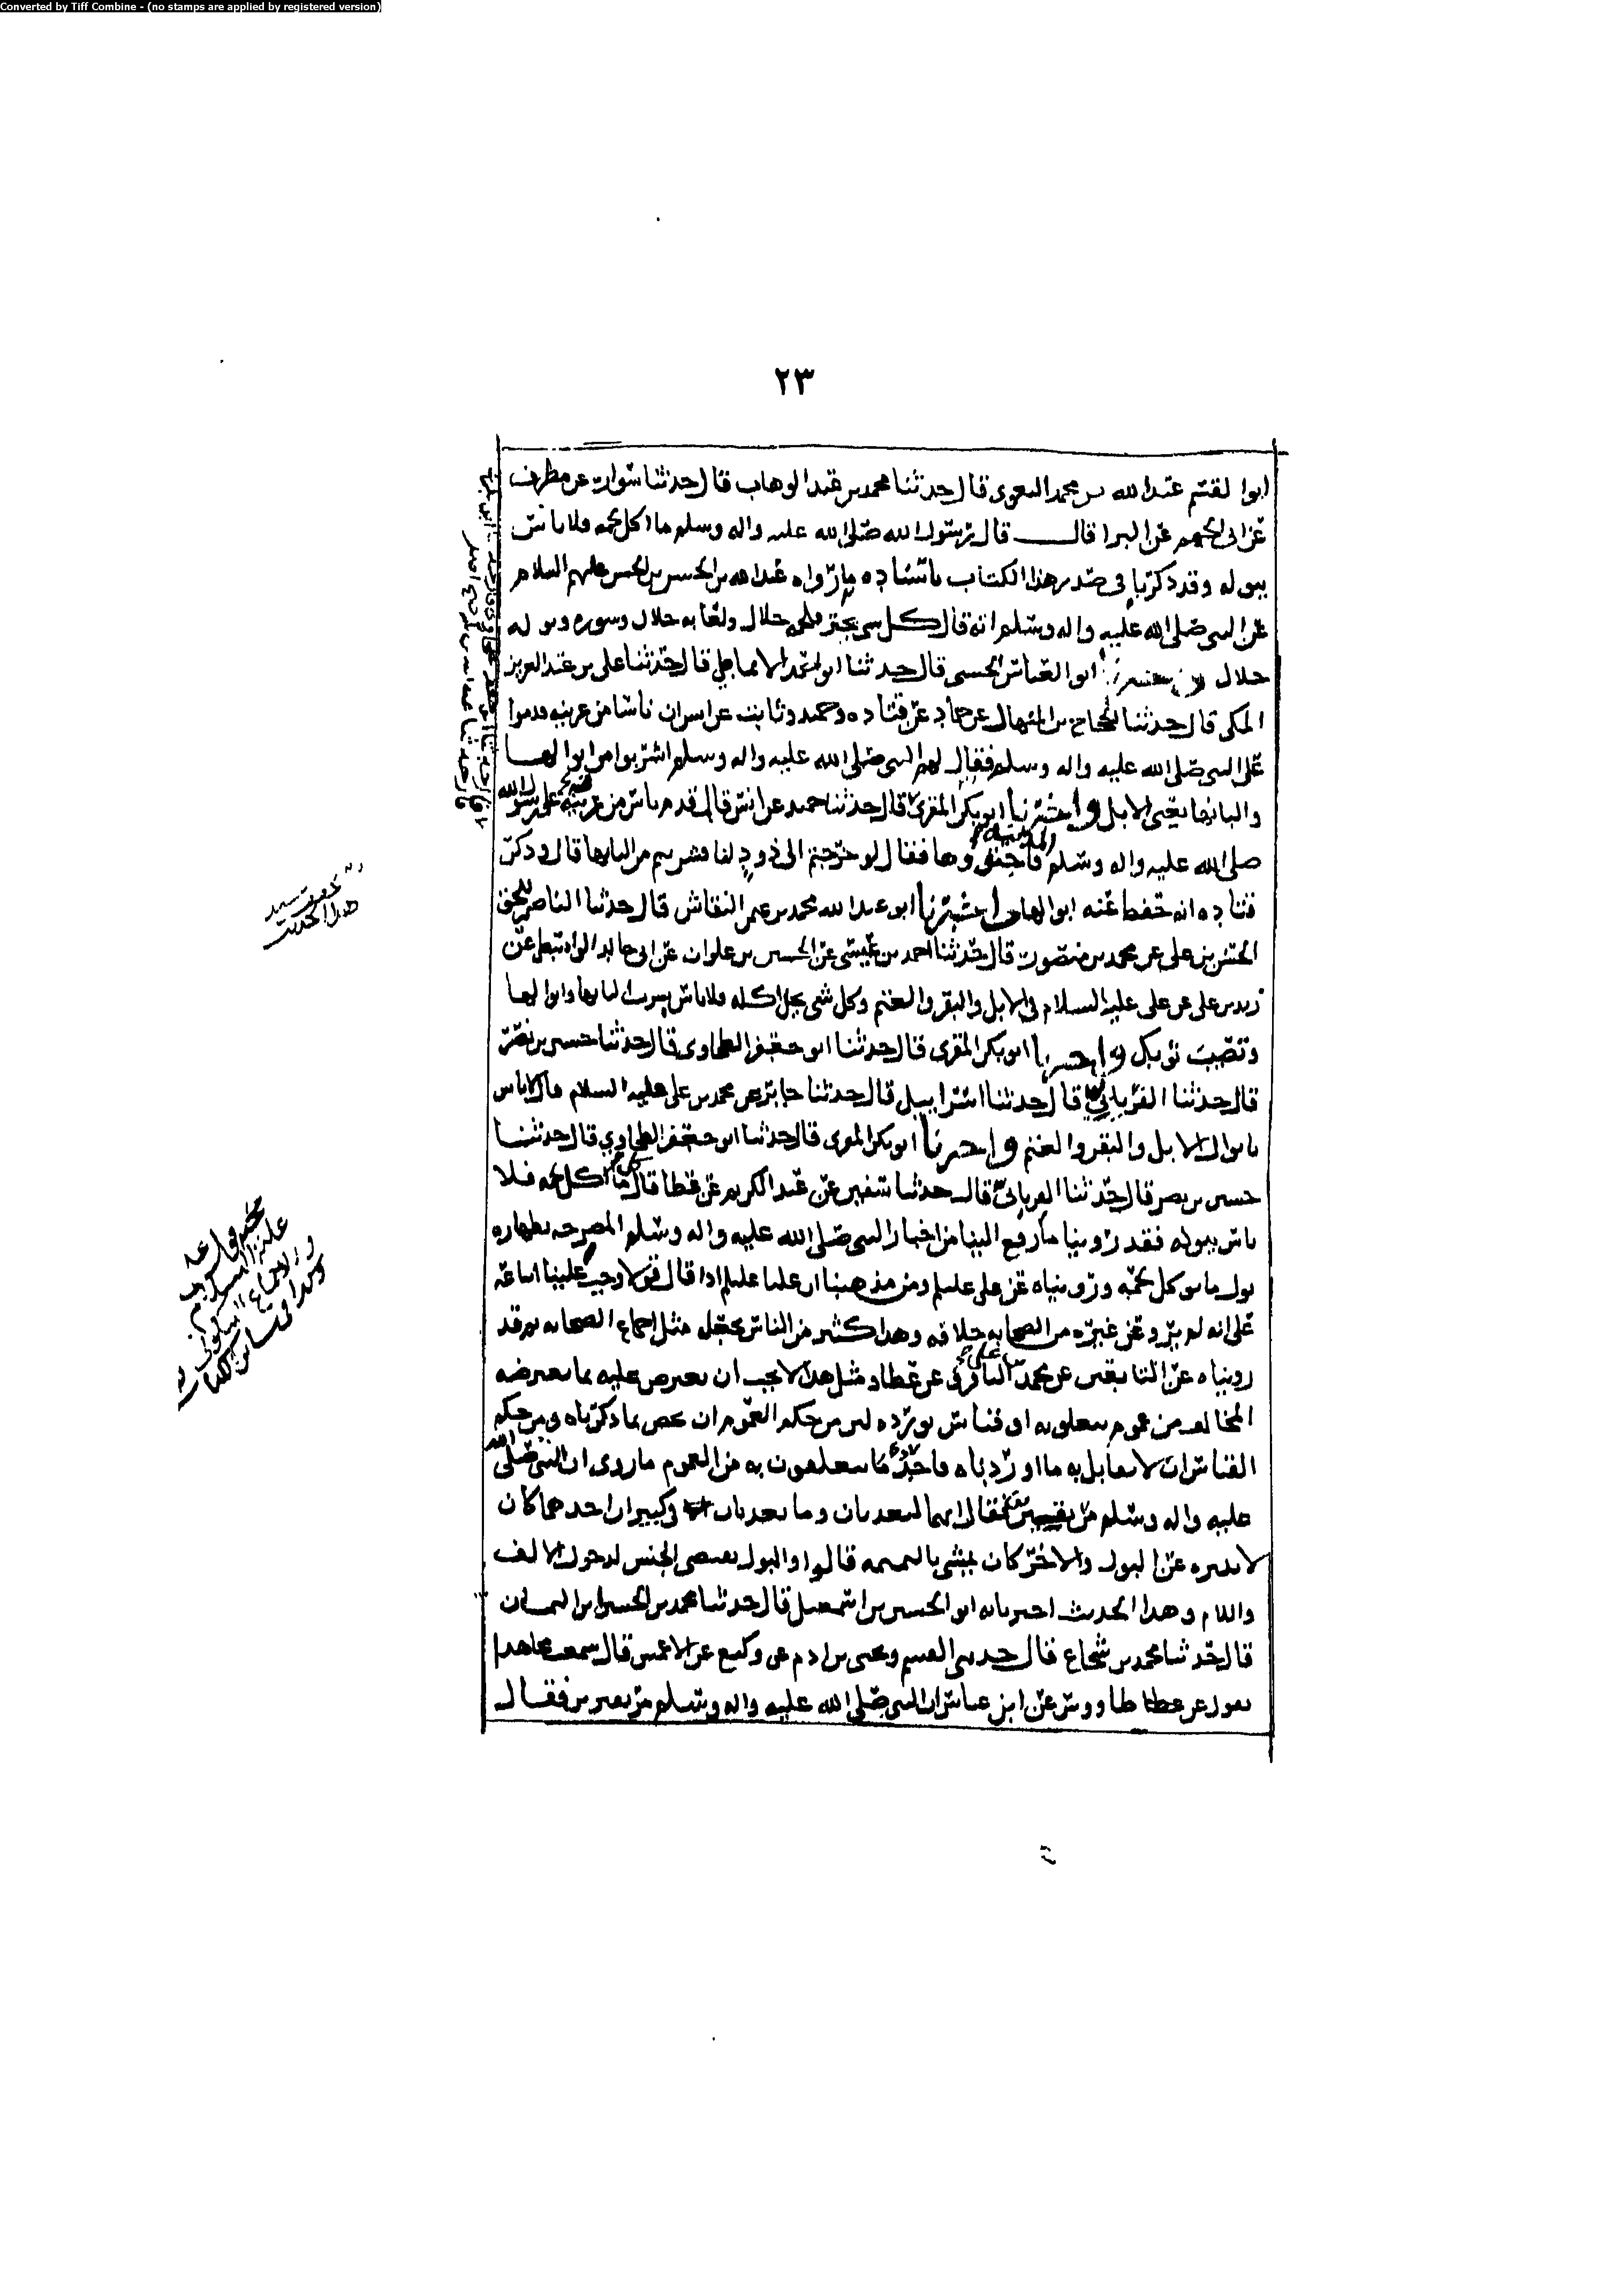 Converted by Tiff Combine - (no stamps are applied by registered version)
٢٣
ابوا لقسم عبدالله بن محمد البغوى قال حدثنا محمد بن عبدالوهاب قال حدثنا سوار عن مطرف
عن ابى الجهم عن البرا قال قال رسول الله صلى الله عليه واله وسلم ما اكل لحمه فلا باس
ببوله وقد ذكرنا فى صدر هذا الكتاب باسناده ما رواه عبدالله بن الحسن بن الحسن عليهم السلام
عن النبى صلى الله عليه واله وسلم انه قال كل شى يجتر فلحمه حلال ولعابه حلال وسوره وبوله
حلال ابو العباس الحسنى قال حدثنا ابو احمد الانماطى قال حدثنا على بن عبدالعزيز
المكى قال حدثنا الحجاج بن المنهال عن حماد عن قتاده وحميد وثابت عن انس ان ناسا من عرينه قدموا
على النبى صلى الله عليه واله وسلم فقال لهم النبى صلى الله عليه واله وسلم اشربوا من ابوالها
والبانها يعنى الابل واخبرنا ابو بكر المقرى قال حدثنا حميد عن انس قال قدم ناس من عرينه على رسول الله
صلى الله عليه واله وسلم المدينه فاجتووها فقال لو خرجتم الى ذود لنا فشربتم من البانها قال وذكر
قتاده انه حفظ عنه ابوالها واخبرنا ابو عبدالله محمد بن عمر النقاش قال حدثنا الناصر للحق
الحسن بن على عن محمد بن منصور قال حدثنا احمد بن عيسى عن الحسين بن علوان عن ابى خالد الواسطى عن
زيد بن على عن على عليه السلام فى الابل والبقر والغنم وكل شى يحل اكله فلا باس بشرب البانها وابوالها
وتصيب ثوبك واخبرنا ابو بكر المقرى قال حدثنا ابو جعفر الطحاوى قال حدثنا حسين بن نصر
قال حدثنا الفريابى قال حدثنا اسرائيل قال حدثنا جابر عن محمد بن على عليه السلام قال لا باس
بابوال الابل والبقر والغنم واخبرنا ابو بكر المقرى قال حدثنا ابو جعفر الطحاوى قال حدثنا
حسين بن نصر قال حدثنا الفريابى قال حدثنا سفين عن عبد الكريم عن عطا قال كل ما اكل لحمه فلا
باس ببوله فقد روينا ما رفع الينا من اخبار النبى صلى الله عليه واله وسلم المصرحه بطهاره
بول ما يوكل لحمه ورويناه عن على عليلم ومن مذهبنا ان عليا عليلم اذا قال قولا وجب علينا اتباعه
على انه لم يرو عن غيره من الصحابه خلافه وهذا كثير من الناس يجعله مثل اجماع الصحابه ثم قد
رويناه عن التابعين عن محمد بن على الباقر وعن عطا ومثل هذا لا يجب ان يعترض عليه بما يعترضه
المخالف من عموم يتعلق به او قياس يورده لان من حكم العموم ان يخص بما ذكرناه ومن حكم
القياس ان لا يقابل به ما اوردناه فاحد ما يتعلقون به من العموم ما روى ان النبى صلى الله
عليه واله وسلم مر بقبرين فقال انهما ليعذبان وما يعذبان فى كبير ان احدهما كان
لا يستنزه عن البول والاخر كان يمشى بالنميمه قالوا والبول يقتضى الجنس لدخول الالف
واللام وهذا الحديث اخبرنا به ابو الحسين بن اسمعيل قال حدثنا محمد بن الحسين ابن اليمان
قال حدثنا محمد بن شجاع قال حدثنى القسم ويحيى بن ادم عن وكيع عن الاعمش قال سمعت مجاهدا
يقول عن عطا طاووس عن ابن عباس ان النبى صلى الله عليه واله وسلم مر بقبرين فقال
هذا الحديث